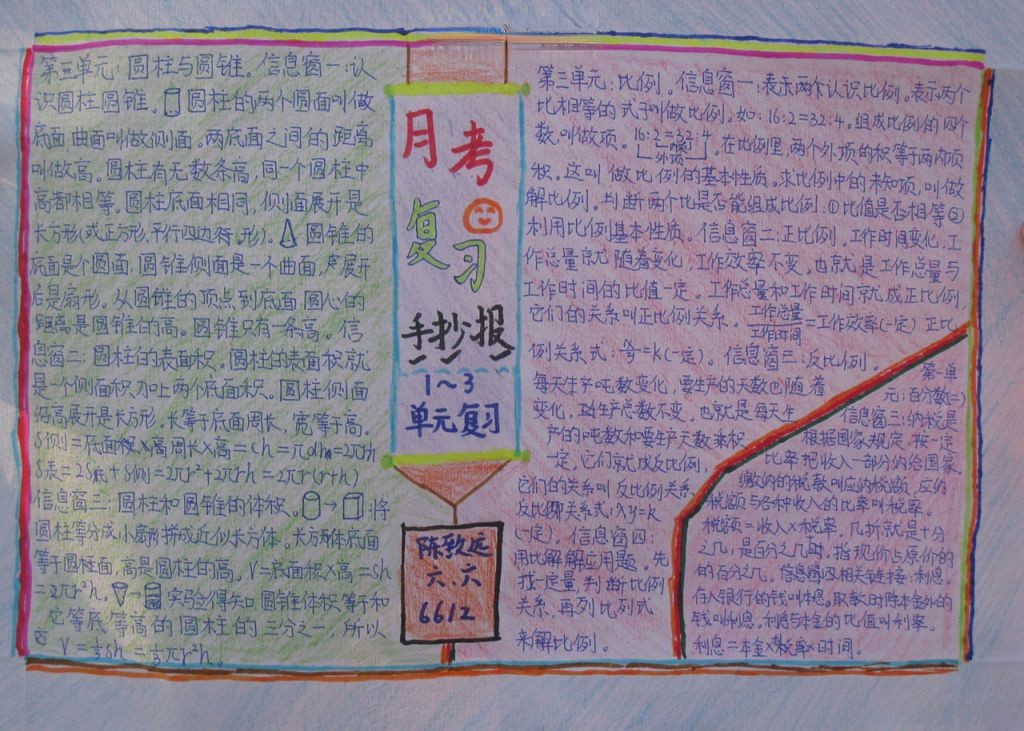 第二单元:圆柱与圆锥。信息窗一:认
识圆柱圆锥。圆柱的两个圆面叫做
底面,曲面叫做侧面。两底面之间的距离
叫做高。圆柱有无数条高,同一个圆柱中
高都相等。圆柱底面相同,侧面展开是
长方形(或正方形,平行四边形)。圆锥的
底面是个圆面,圆锥侧面是一个曲面,展开
后是扇形。从圆锥的顶点到底面圆心的
距离是圆锥的高。圆锥只有一条高。信
息窗二:圆柱的表面积。圆柱的表面积就
是一个侧面积加上两个底面积。圆柱侧面
沿高展开是长方形,长等于底面周长,宽等于高。
S侧=底面周长×高=ch=πdh=2πrh
S表=2S底+S侧=2πr²+2πrh=2πr(r+h)
信息窗三:圆柱和圆锥的体积。→将
圆柱等分成小扇形拼成近似长方体。长方体底面
等于圆柱面,高是圆柱的高。V=底面积×高=sh
=2πr²h。→实验得知圆锥体积等于和
它等底等高的圆柱的三分之一,所以
V=⅓sh=⅓πr²h。
月考
复习
手抄报
1~3
单元复习
陈致远
六.六
6612
第三单元:比例。信息窗一:表示两个认识比例。表示两个
比相等的式子叫做比例。如:16:2=32:4。组成比例的四个
数,叫做项。16:2=32:4。在比例里,两个外项的积等于两内项
内项
外项
积。这叫做比例的基本性质。求比例中的未知项,叫做
解比例。判断两个比是否能组成比例:①比值是否相等②
利用比例基本性质。信息窗二:正比例。工作时间变化,工
作总量就随着变化,工作效率不变。也就是工作总量与
工作时间的比值一定。工作总量和工作时间就成正比例,
它们的关系叫正比例关系。工作总量/工作时间=工作效率(一定)正比
例关系式:y/x=k(一定)。信息窗三:反比例。
每天生产吨数变化,要生产的天数也随着
变化,生产总数不变。也就是每天生
产的吨数和要生产天数乘积
一定,它们就成反比例,
它们的关系叫反比例关系
反比例关系式:xy=k
(一定)。信息窗四:
用比解解应用题。先
找一定量,判断比例
关系,再列比列式
来解比例。
第一单
元:百分数(二)
信息窗三:纳税是
根据国家规定,按一定
比率把收入一部分纳给国家
缴纳的税款叫应纳税额,应纳
税额与各种收入的比率叫税率。
税额=收入×税率。几折就是十分
之几,是百分之几时,指现价占原价的
的百分之几。信息窗四:相关链接:利息。
存入银行的钱叫本息。取款时除本金外的
钱叫利息。利息与本金的比值叫利率。
利息=本金×税率×时间。